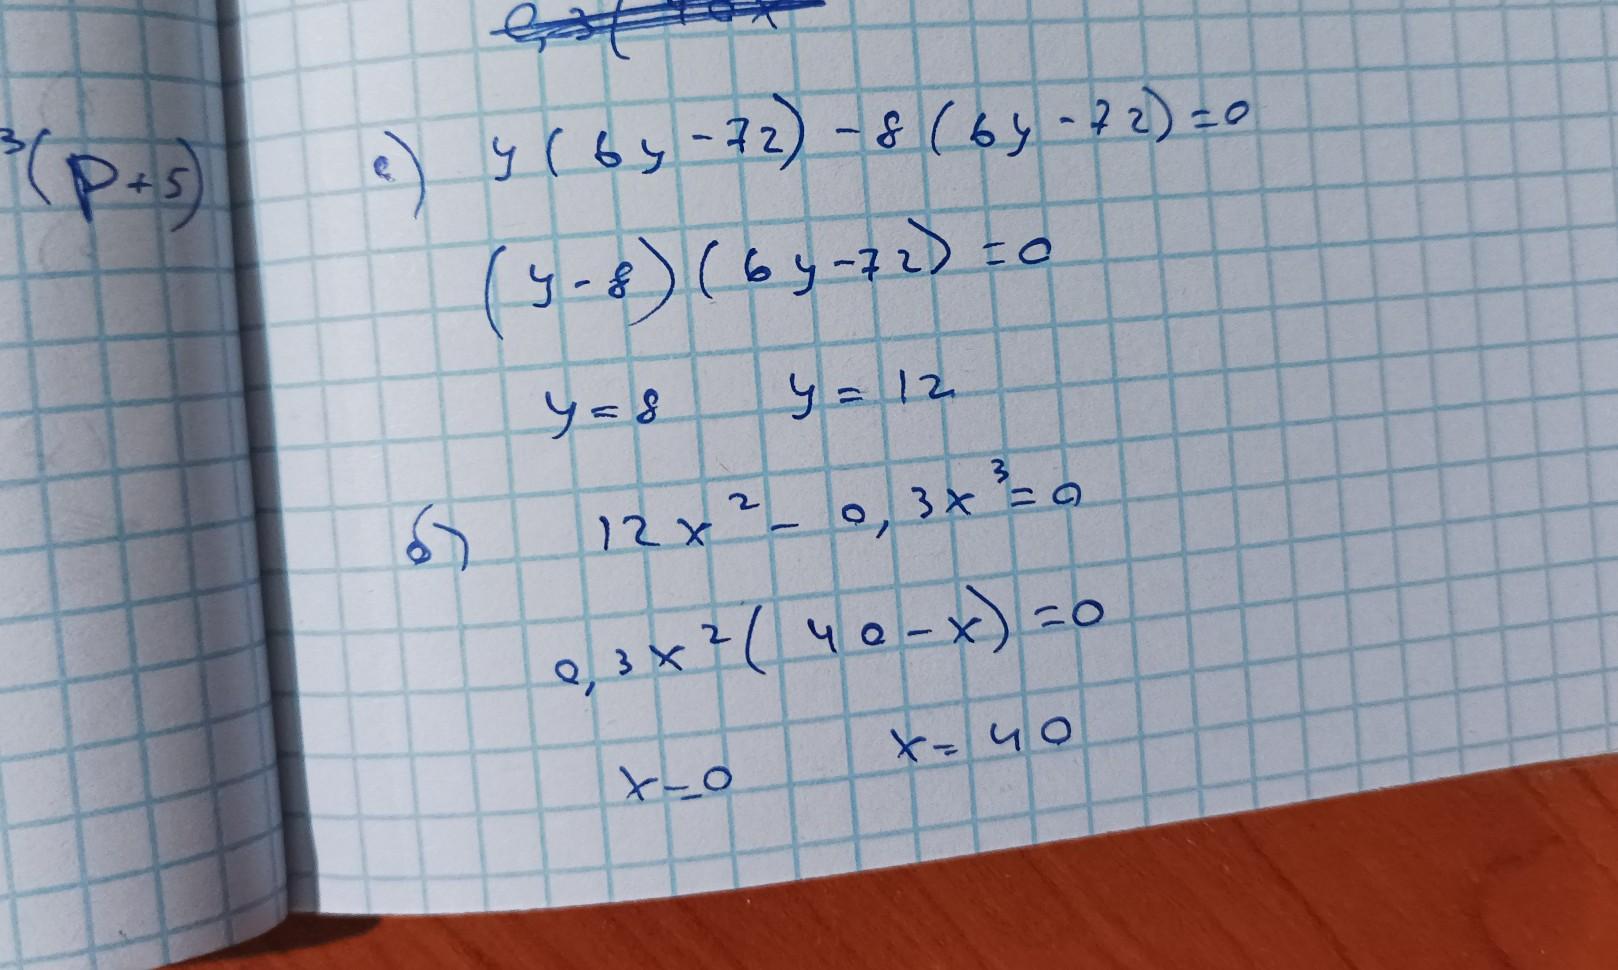 ³(p+5)
а) y(6y-72)-8(6y-72)=0
(y-8)(6y-72)=0
y=8 y=12
б) 12x²-0,3x³=0
0,3x²(40-x)=0
x=0 x=40